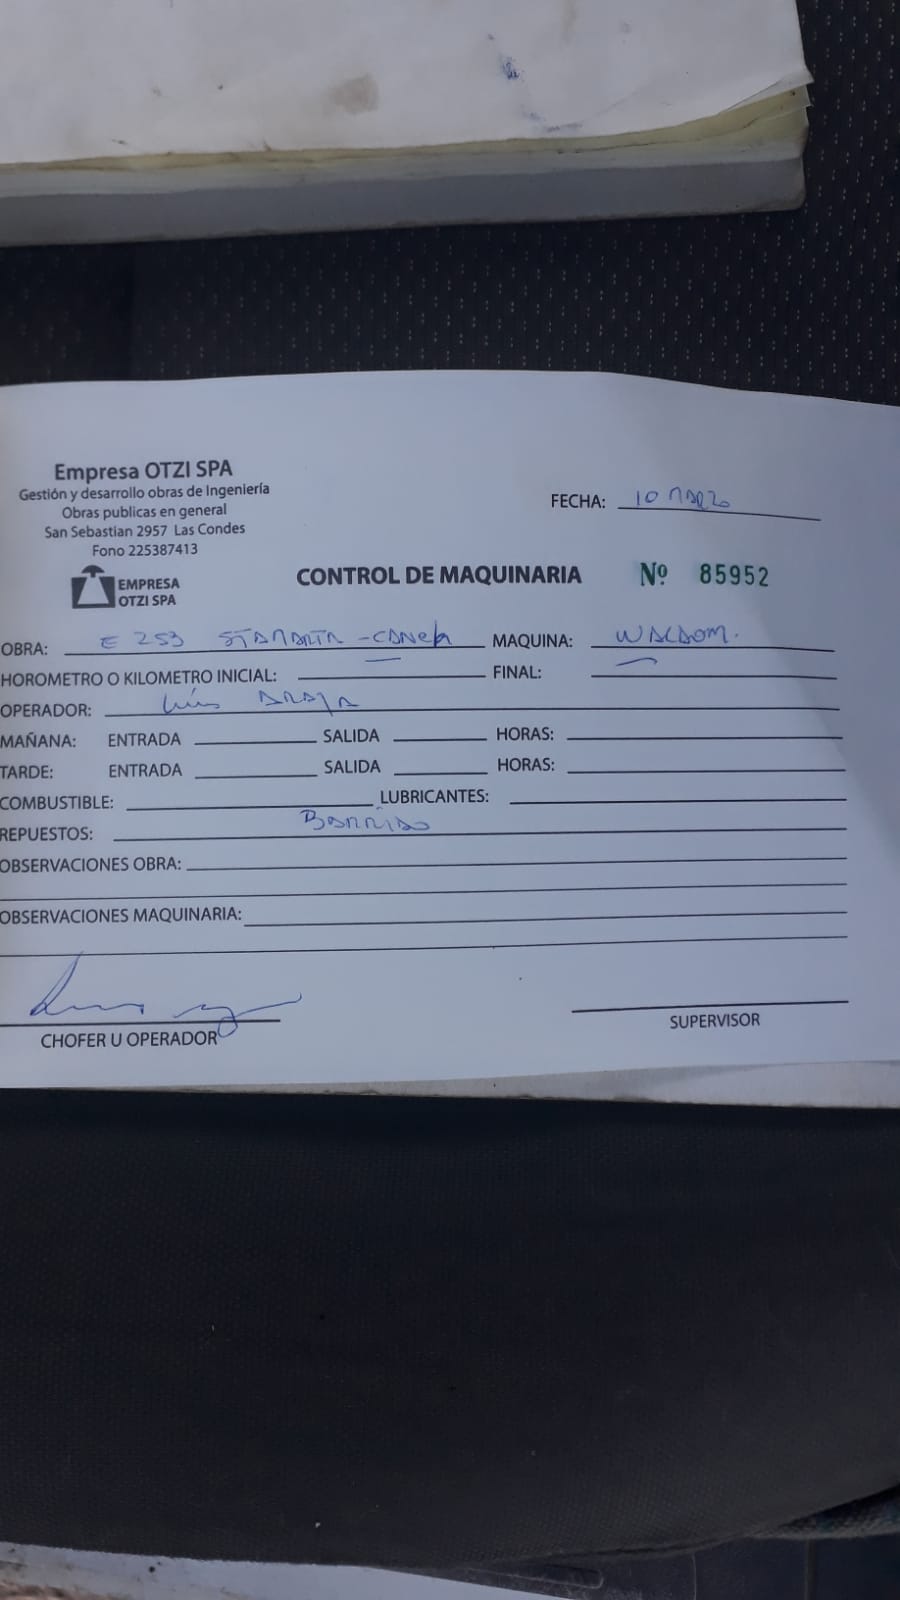 Empresa OTZI SPA
Gestión y desarrollo obras de Ingeniería
Obras publicas en general
San Sebastian 2957 Las Condes
Fono 225387413
EMPRESA
OTZI SPA
FECHA: 10 MARZO
CONTROL DE MAQUINARIA Nº 85952
OBRA: E 253 STAMARTA - CANELA MAQUINA: WALDOM.
HOROMETRO O KILOMETRO INICIAL: — FINAL: —
OPERADOR: Luis ARAYA
MAÑANA: ENTRADA SALIDA HORAS:
TARDE: ENTRADA SALIDA HORAS:
COMBUSTIBLE: LUBRICANTES:
REPUESTOS: BARRIDO
OBSERVACIONES OBRA:
OBSERVACIONES MAQUINARIA:
CHOFER U OPERADOR
SUPERVISOR